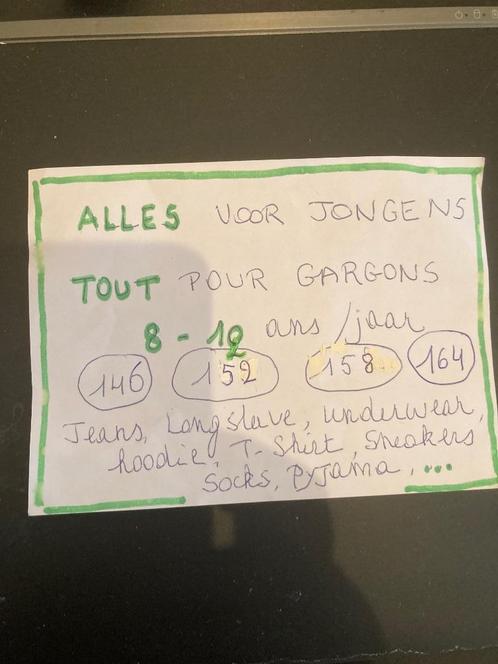 ALLES VOOR JONGENS
TOUT POUR GARGONS
8 - 12 ans / jaar
146 152 158 164
Jeans, Longslave, underwear,
hoodie, T-Shirt, Sneakers
Socks, Pyjama, ...